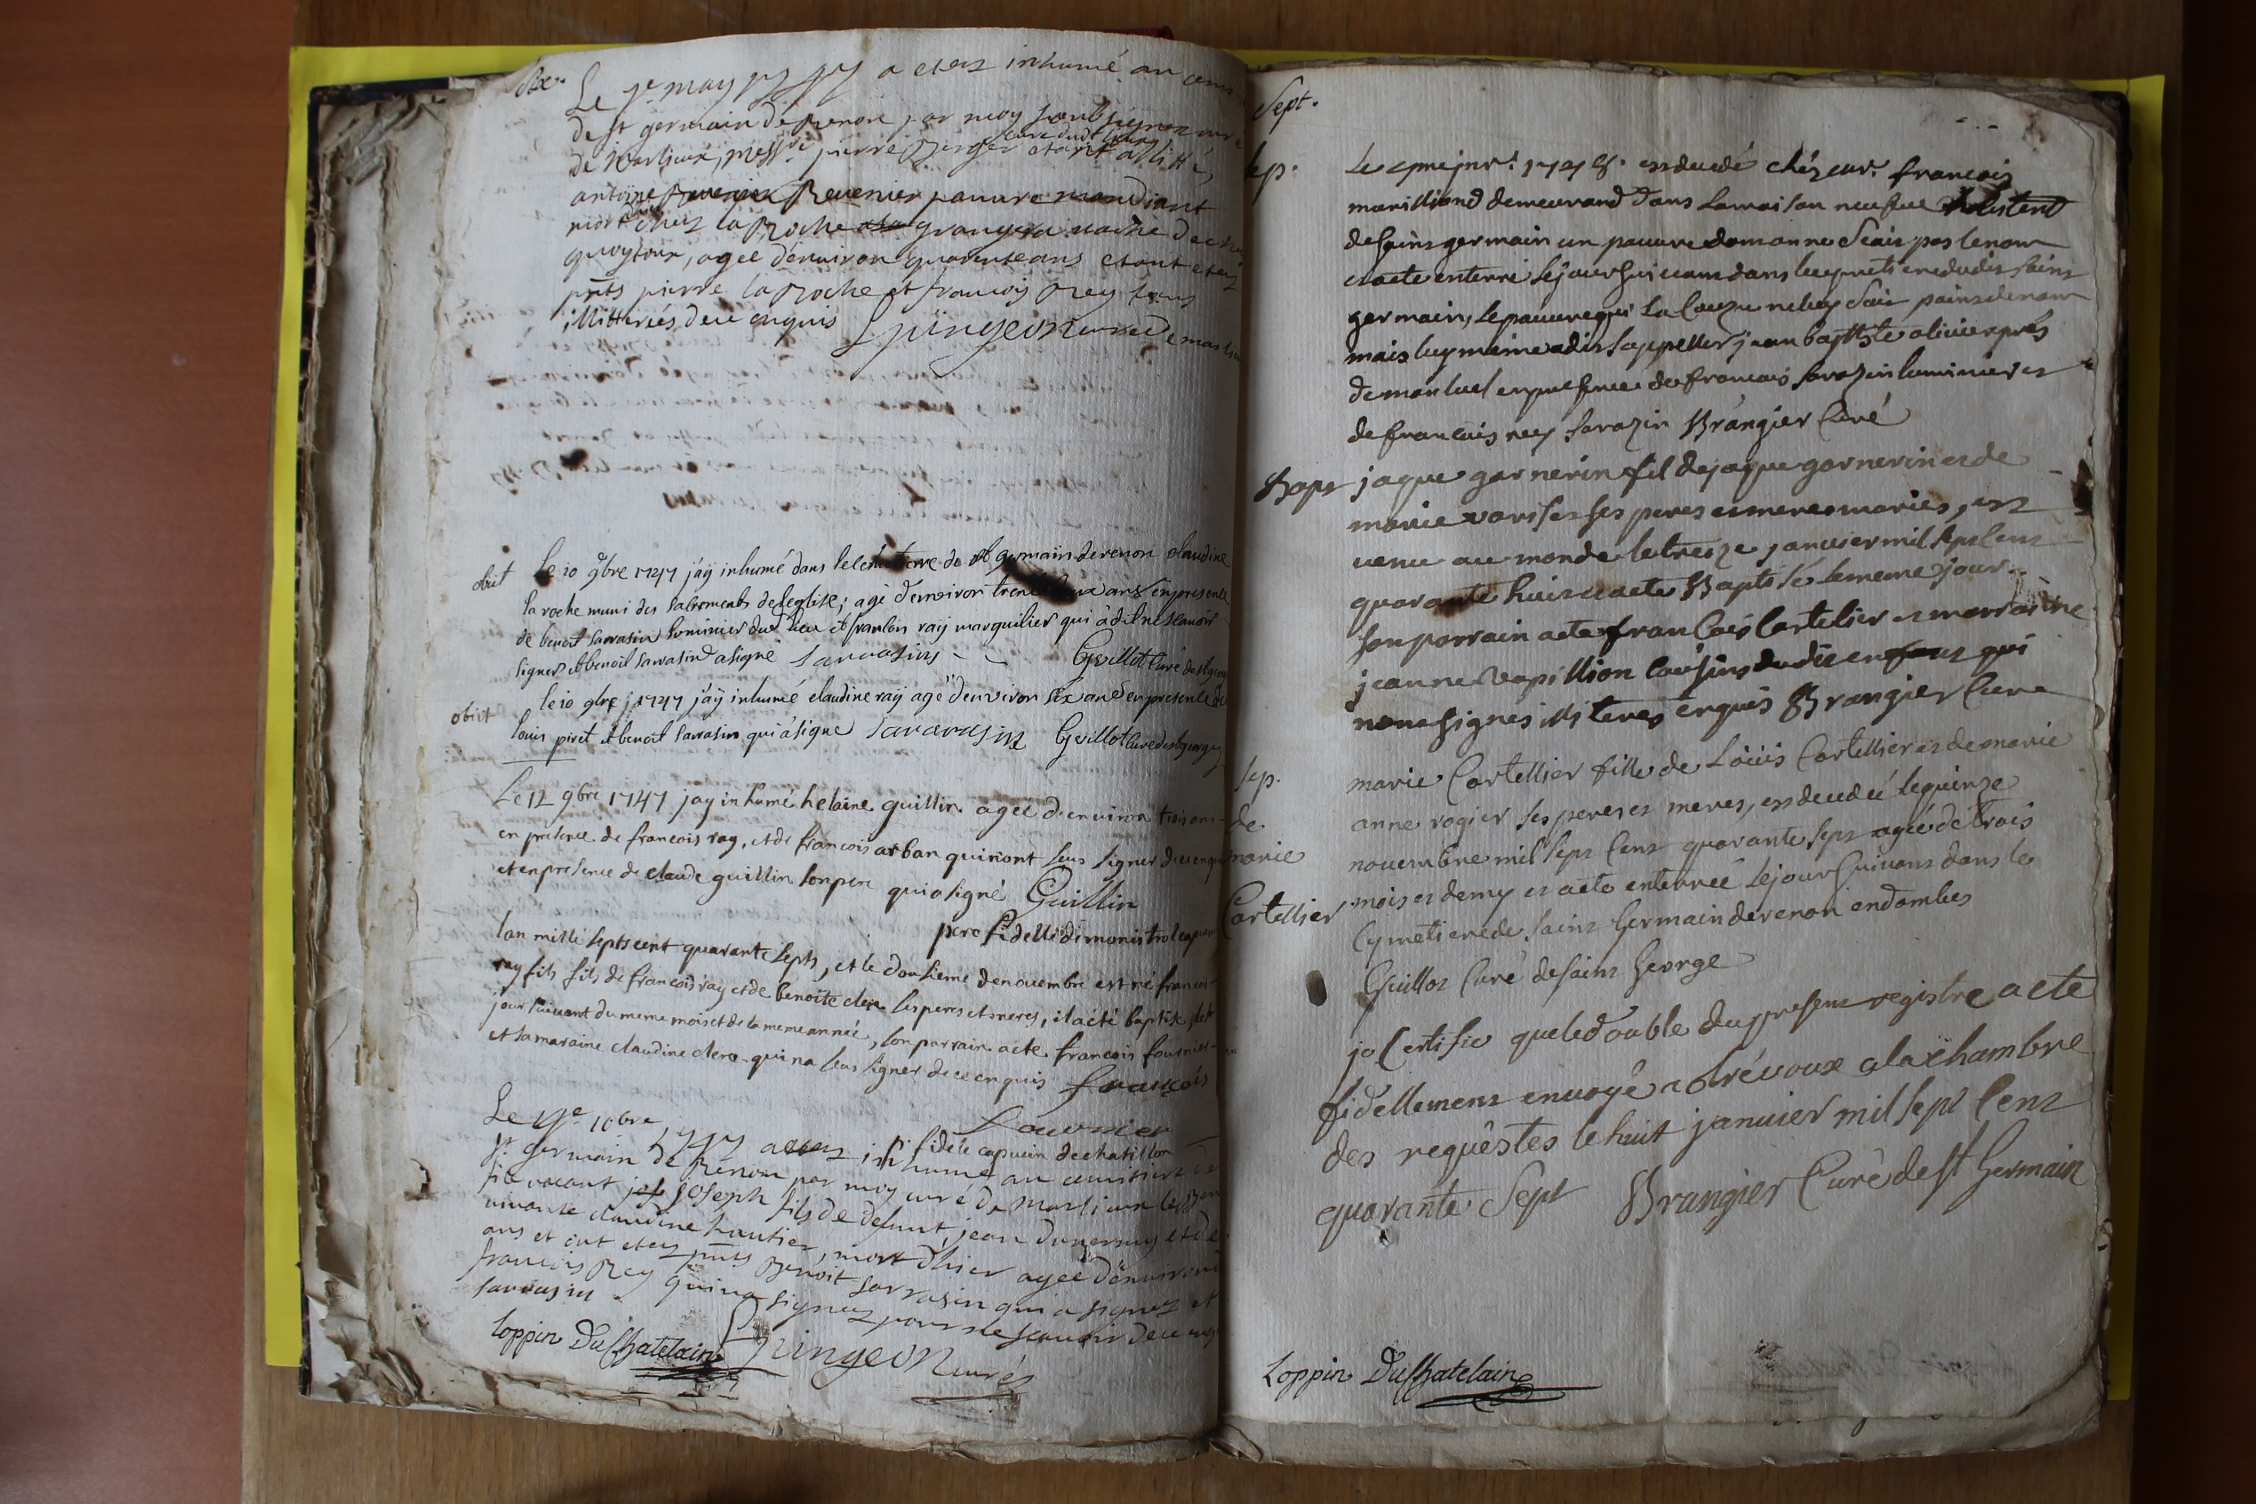 Six.
Le may a etez inhumé au
de st germain de Renon par moy soubsignez curé
de Marlieux, messre pierre etant
curé dudt lieux
antoine Revenier pauvre mandiant
mort chez la Roche granger
agée d'environ quarente ans etant etez
pnts pierre la Roche et francois Rey tous
illitterés de ce enquis Spingeon curé de marlieu
obiit
Le 10 9bre 1747 j'aÿ inhumé dans le cimetierre de st germain de renon claudine
la roche muni des sacrements de l'eglise; agé d'environ ans en presence
de benoit sarrasin luminier dud. lieu et francois raÿ marguilier qui à dit ne scavoir
signer et benoit sarrasin a signé sarrasin Guillot curé de st george
obiit
le 10 9bre 1747 j'aÿ inhumé claudine raÿ agé d'environ six ans en presence de
louis piret et benoit sarrasin qui à signé sararasin Guillot curé de st george
Le 12 9bre 1747 jay inhumé helaine guillin agée d'environ trois ans
en présence de francois ray, et de francois arban qui n'ont seus signer de ce enquis
et en presence de claude guillin son pere qui a signé Guillin
pere fidelle de monistrol capucin
lan mille sept cent quarante sept, et le dousieme de novembre est né francois
ray fils fils de francois ray et de benoite clere ses peres et meres, il a été baptisé le
jour suivant du meme mois et de la meme année, son parrain a été francois fournier
et sa maraine claudine clere qui na seus signer de ce enquis françois
fournier
fidele capucin de chatillon
Le 10bre 1747 a etez inhumé au cimitiere de
st germain de Renon par moy curé de Marlieux le Ben
fice vacant joseph fils de defunt jean et de
vivante claudine hautier, mort d'hier agée d'environ
ans et ont etez pnts Benoit sarrasin qui a signez et
francois Rey qui na signez pour ne scavoir de ce enquis
sarrasin
Spingeon curé
Loppin DuChatelain
Sept.
sep.
Le janr. 1748. est decedé chés francois
marilliond demeurand dans la maison neufve
de saint germain un pauvre dont on ne scait pas le nom
et a ete enterré le jour suivant dans le cymetiere dudit saint
germain, le pauvre qui la ne luy scait point de nom
mais luy meme a dit sappeller jean baptiste olivier prés
de monluel en presence de francois sarazin luminier et
de francois rey sarazin Brangier Curé
Bapt
jaque garnerin fil de jaque garnerin et de
marie varistes ses peres et meres mariés, est
venu au monde le treize janvier mil sept cent
quarante huit et a ete Baptisé le meme jour
son parrain a ete francois Cartelier et marraine
jeanne vapillion cousins dudit enfant qui
nont signés illiterés enquis Brangier Curé
sep.
de
marie
Cartellier
marie Cartellier fille de Loüis Cartellier et de marie
anne rogier ses peres et meres, est decedéé le quinze
novembre mil sept cent quarante sept agée de trois
mois et demy et a ete enterréé le jour suivant dans le
Cymetiere de saint Germain de renon en dombes
Guillot Curé de saint George
je certifie que le double du present registre a ete
fidellement envoyé a trévoux a la chambre
des requêstes le huit janvier mil sept cent
quarante sept Brangier Curé de st Germain
Loppin DuChatelain